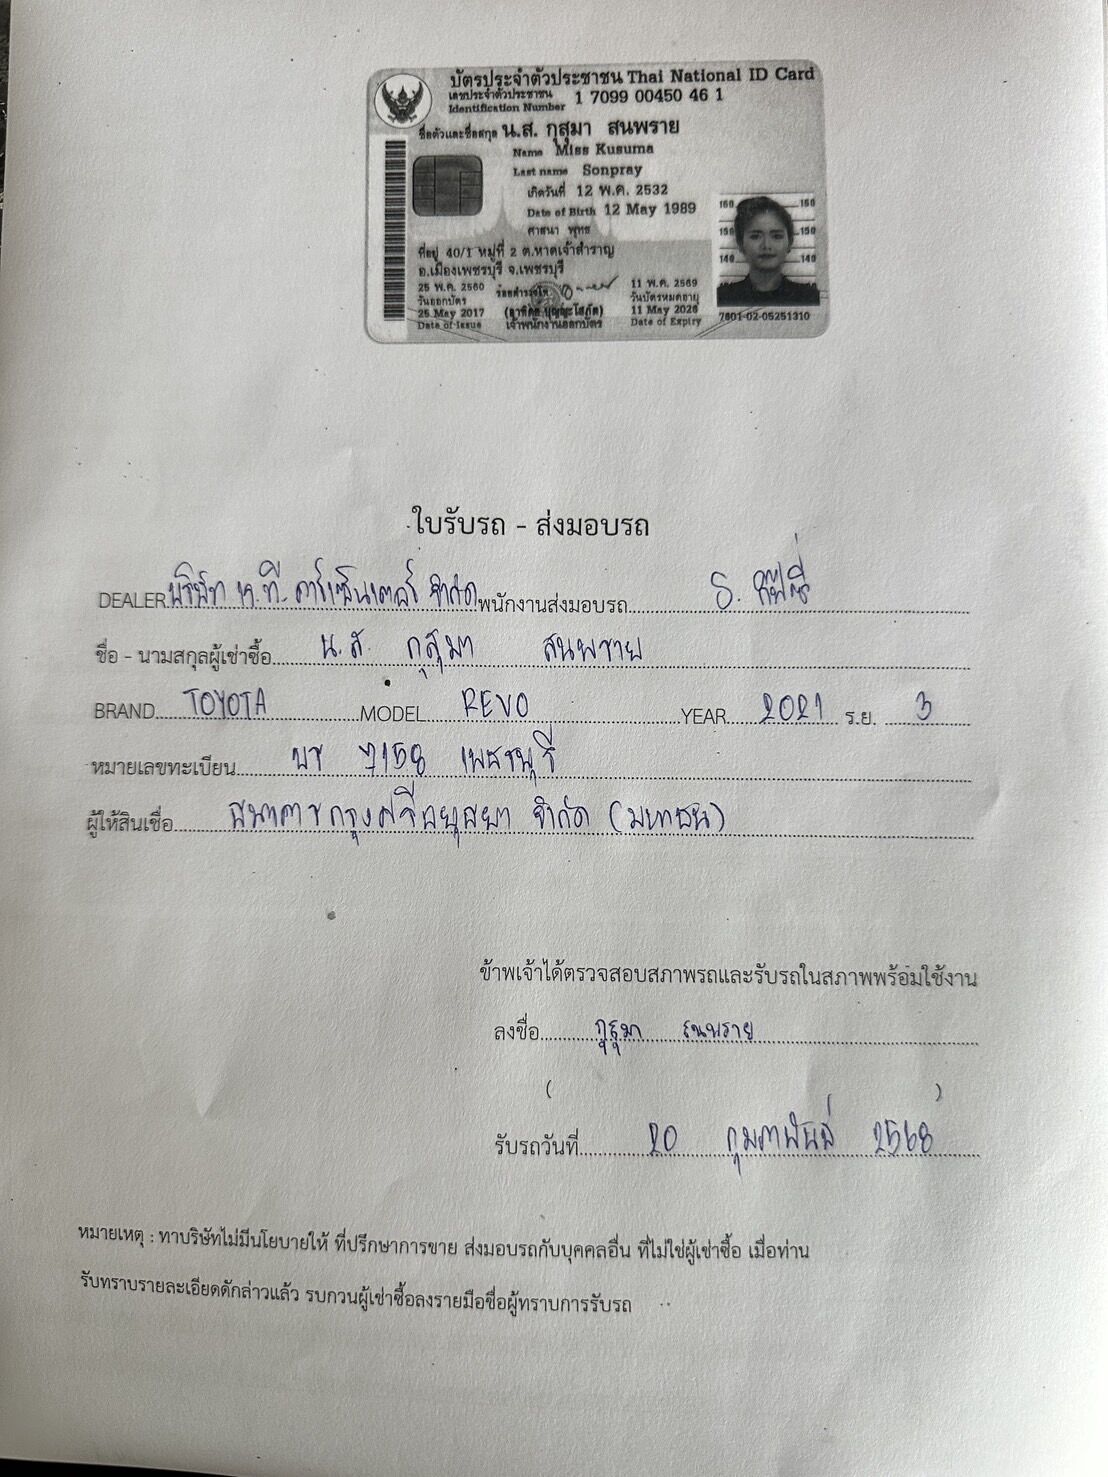 บัตรประจำตัวประชาชน Thai National ID Card
เลขประจำตัวประชาชน
Identification Number 1 7099 00450 46 1
ชื่อตัวและชื่อสกุล น.ส. กุสุมา สนพราย
Name Miss Kusuma
Last name Sonpray
เกิดวันที่ 12 พ.ค. 2532
Date of Birth 12 May 1989
ศาสนา พุทธ
ที่อยู่ 40/1 หมู่ที่ 2 ต.หาดเจ้าสำราญ
อ.เมืองเพชรบุรี จ.เพชรบุรี
25 พ.ค. 2560
วันออกบัตร
25 May 2017
Date of Issue
ร้อยตำรวจโท
เจ้าพนักงานออกบัตร
11 พ.ค. 2569
วันบัตรหมดอายุ
11 May 2026
Date of Expiry
160 160
150 150
140 140
7601-02-05251310
ใบรับรถ - ส่งมอบรถ
DEALER บริษัท เค.ที. คาร์เซ็นเตอร์ จำกัด พนักงานส่งมอบรถ
ชื่อ - นามสกุลผู้เช่าซื้อ น.ส. กุสุมา สนพราย
BRAND TOYOTA MODEL REVO YEAR 2021 ร.ย. 3
หมายเลขทะเบียน บร 7158 เพชรบุรี
ผู้ให้สินเชื่อ ธนาคารกรุงศรีอยุธยา จำกัด (มหาชน)
ข้าพเจ้าได้ตรวจสอบสภาพรถและรับรถในสภาพพร้อมใช้งาน
ลงชื่อ กุสุมา สนพราย
( )
รับรถวันที่ 20 กุมภาพันธ์ 2568
หมายเหตุ : ทาบริษัทไม่มีนโยบายให้ ที่ปรึกษาการขาย ส่งมอบรถกับบุคคลอื่น ที่ไม่ใช่ผู้เช่าซื้อ เมื่อท่าน
รับทราบรายละเอียดดักล่าวแล้ว รบกวนผู้เช่าซื้อลงรายมือชื่อผู้ทราบการรับรถ